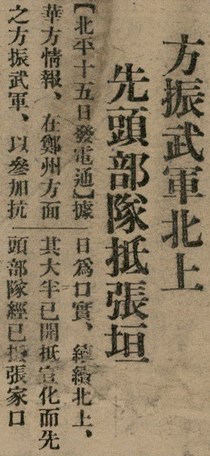 方振武軍北上
先頭部隊抵張垣
【北平十五日發電通】據
華方情報、在鄭州方面
之方振武軍、以參加抗
日爲口實、繼續北上、
其大半已開抵宣化而先
頭部隊經已抵張家口